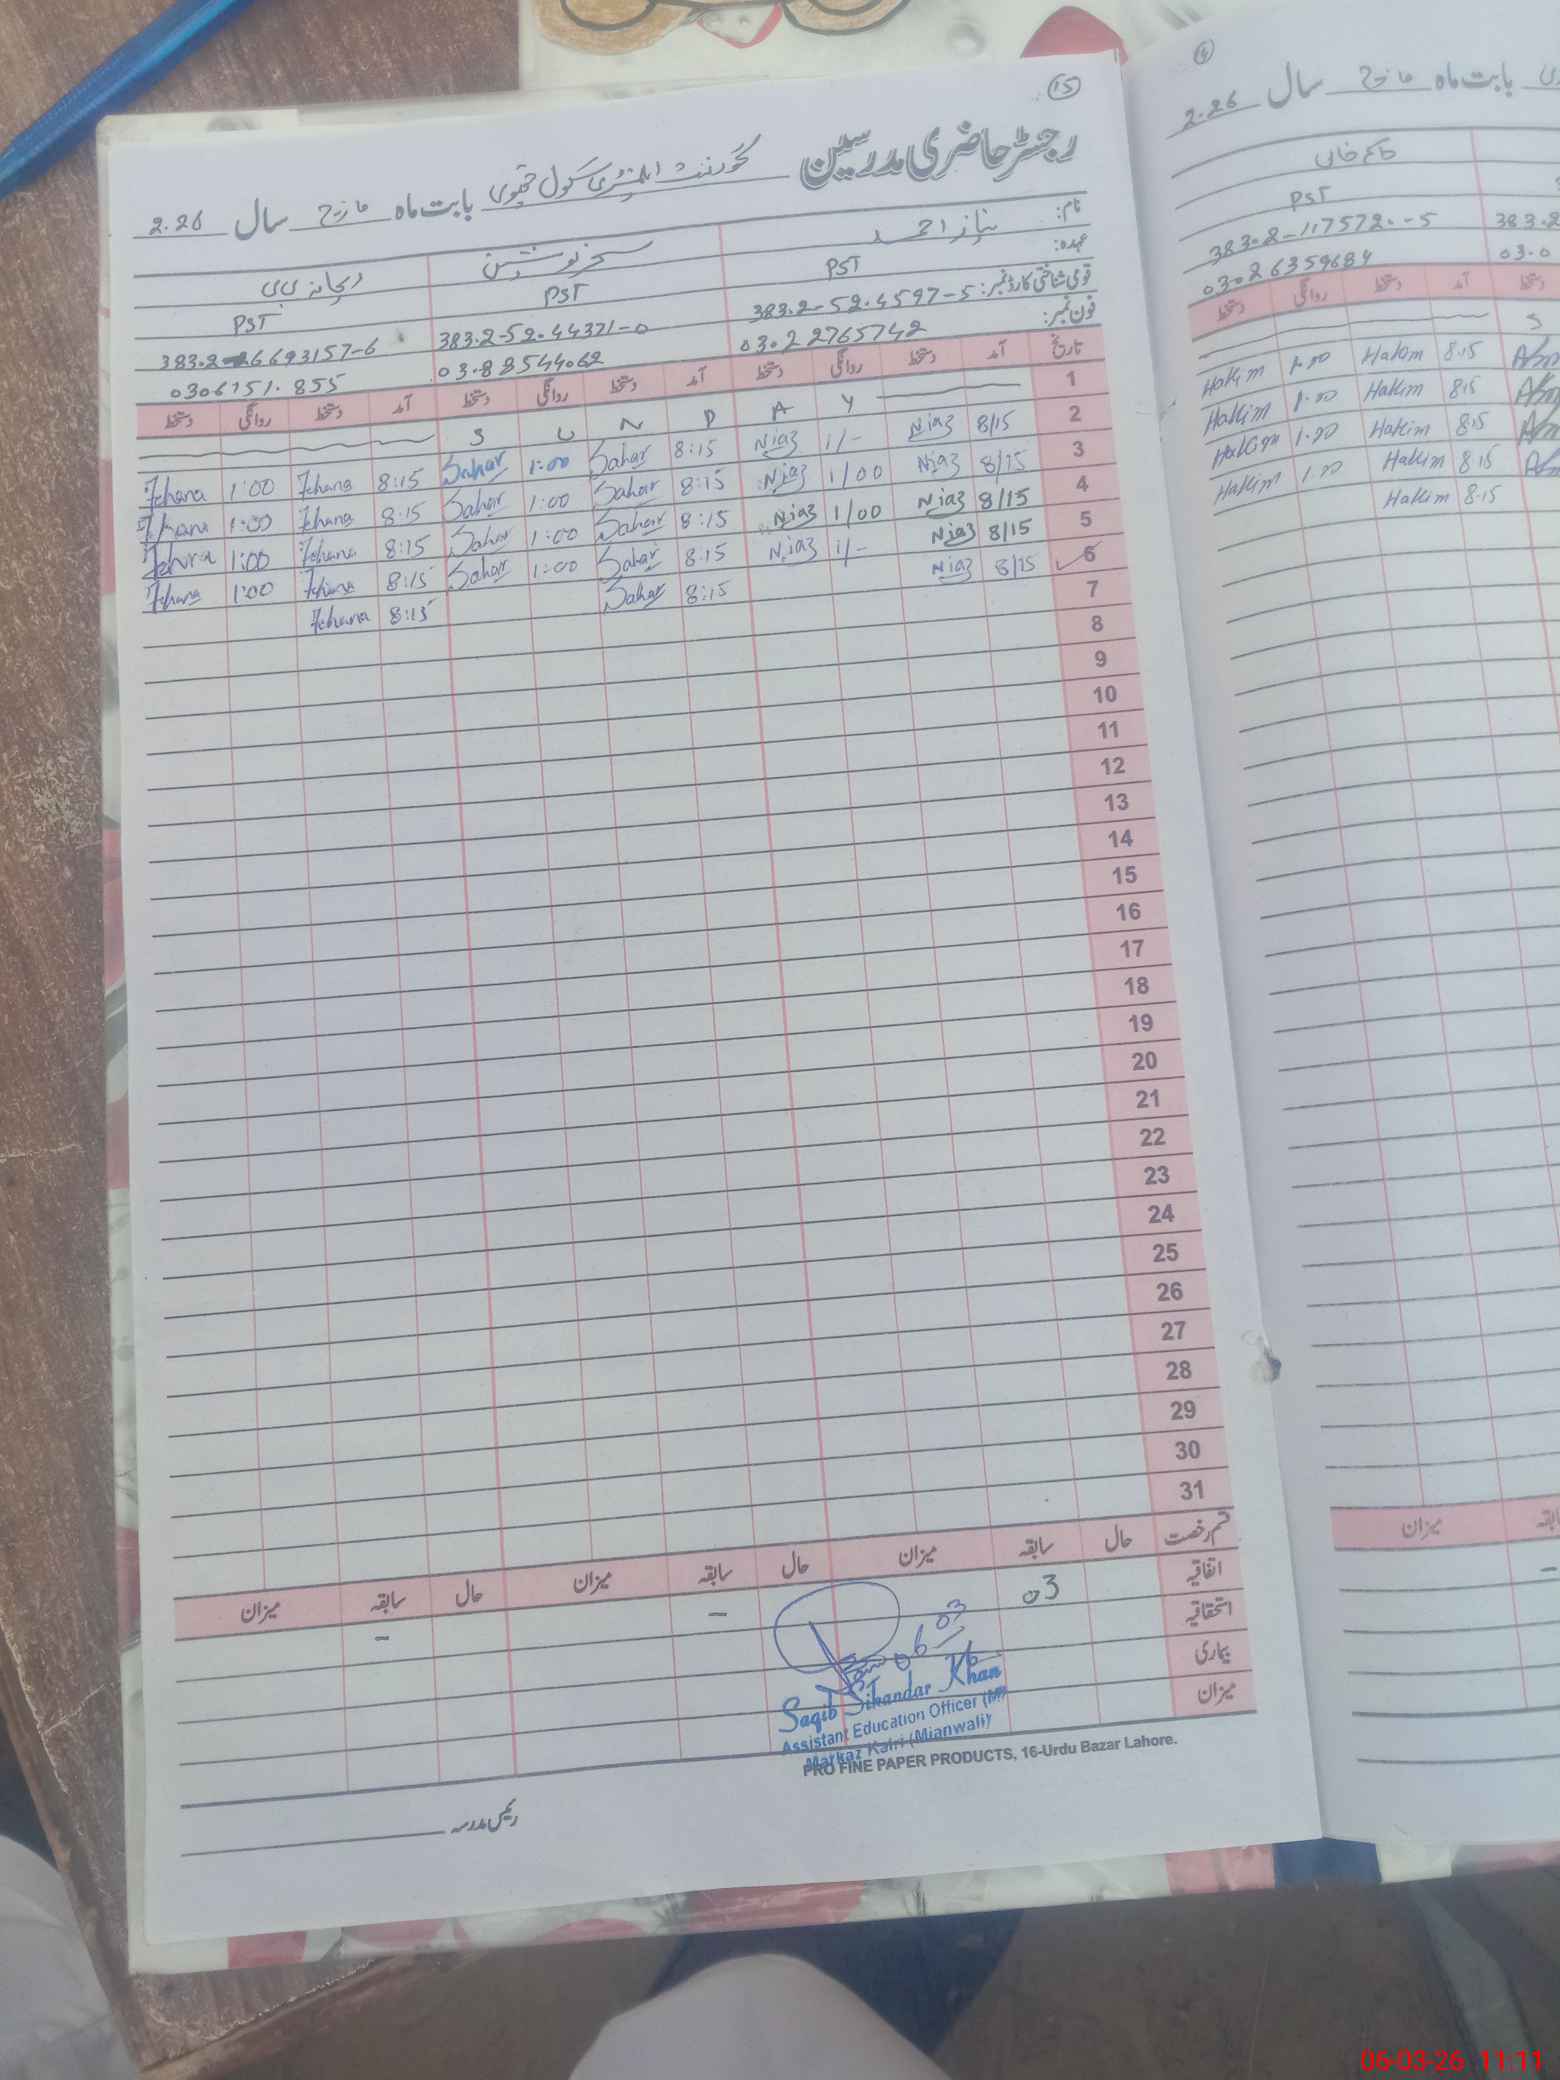 15
رجسٹر حاضری مدرسین گورنمنٹ ایلیمنٹری سکول بابت ماہ مارچ سال 2.26
نام: نیاز احمد سحر نوشین ریحانہ بی بی
عہدہ: PST PST PST
قومی شناختی کارڈ نمبر: 383.2-52.4597-5 383.2-52.44371-0 383.2-26693157-6
فون نمبر: 03.22765742 03.88544062 0306151.855
تاریخ آمد دستخط روانگی دستخط آمد دستخط روانگی دستخط آمد دستخط روانگی دستخط
1 S U N D A Y
2 8/15 Niaz 1/- Niaz 8:15 Sahar 1:00 Sahar 8:15 1:00
3 8/15 Niaz 1/00 Niaz 8:15 Sahar 1:00 Sahar 8:15 1:00
4 8/15 Niaz 1/00 Niaz 8:15 Sahar 1:00 Sahar 8:15 1:00
5 8/15 Niaz 1/- Niaz 8:15 Sahar 1:00 Sahar 8:15 1:00
6 8/15 Niaz 8:15 Sahar 8:15
7
8
9
10
11
12
13
14
15
16
17
18
19
20
21
22
23
24
25
26
27
28
29
30
31
قسم رخصت حال سابقہ میزان حال سابقہ میزان حال سابقہ میزان
اتفاقیہ 03 - -
استحقاقیہ
بیماری
میزان
06 03
Saqib Sikandar Khan
Assistant Education Officer (M
Markaz Kalri (Mianwali)
PRO FINE PAPER PRODUCTS, 16-Urdu Bazar Lahore.
رئیس مدرسہ
بابت ماہ مارچ سال 2.26
حاکم خان
PST
383.2-1175720-5 383.2
03026359684 03.0
آمد دستخط روانگی دستخط
S
8.15 Hakim 1.00 Hakim
8.15 Hakim 1.00 Hakim
8.15 Hakim 1.00 Hakim
8.15 Hakim 1.00 Hakim
8.15 Hakim
میزان
-
06-03-26 11:11